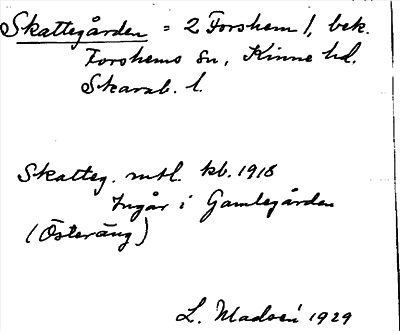 Skattegården = 2 Forshem 1, bek.
Forshems sn, Kinne hd.
Skarab. l.
Skatteg. mtl. kb. 1918
Ingår i Gamlegården
(Österäng)
L. Madsén 1929